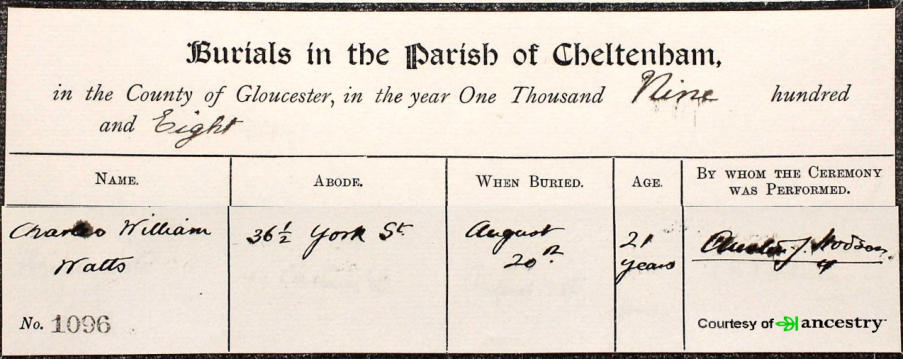 Burials in the Parish of Cheltenham,
in the County of Gloucester, in the year One Thousand Nine hundred
and Eight
NAME. ABODE. WHEN BURIED. AGE. BY WHOM THE CEREMONY
WAS PERFORMED.
Charles William 36½ York St. August 21 J. Hodson
Watts 20th years
No. 1096 Courtesy of ancestry